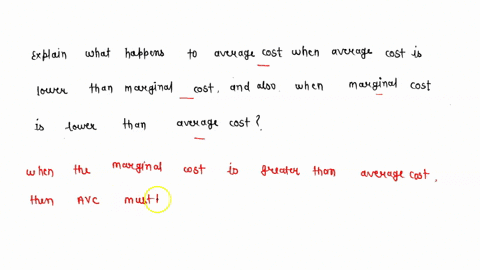 Explain what happens to average cost when average cost is
lower than marginal cost, and also when marginal cost
is lower than average cost?
when the marginal cost is greater than average cost,
then AVC